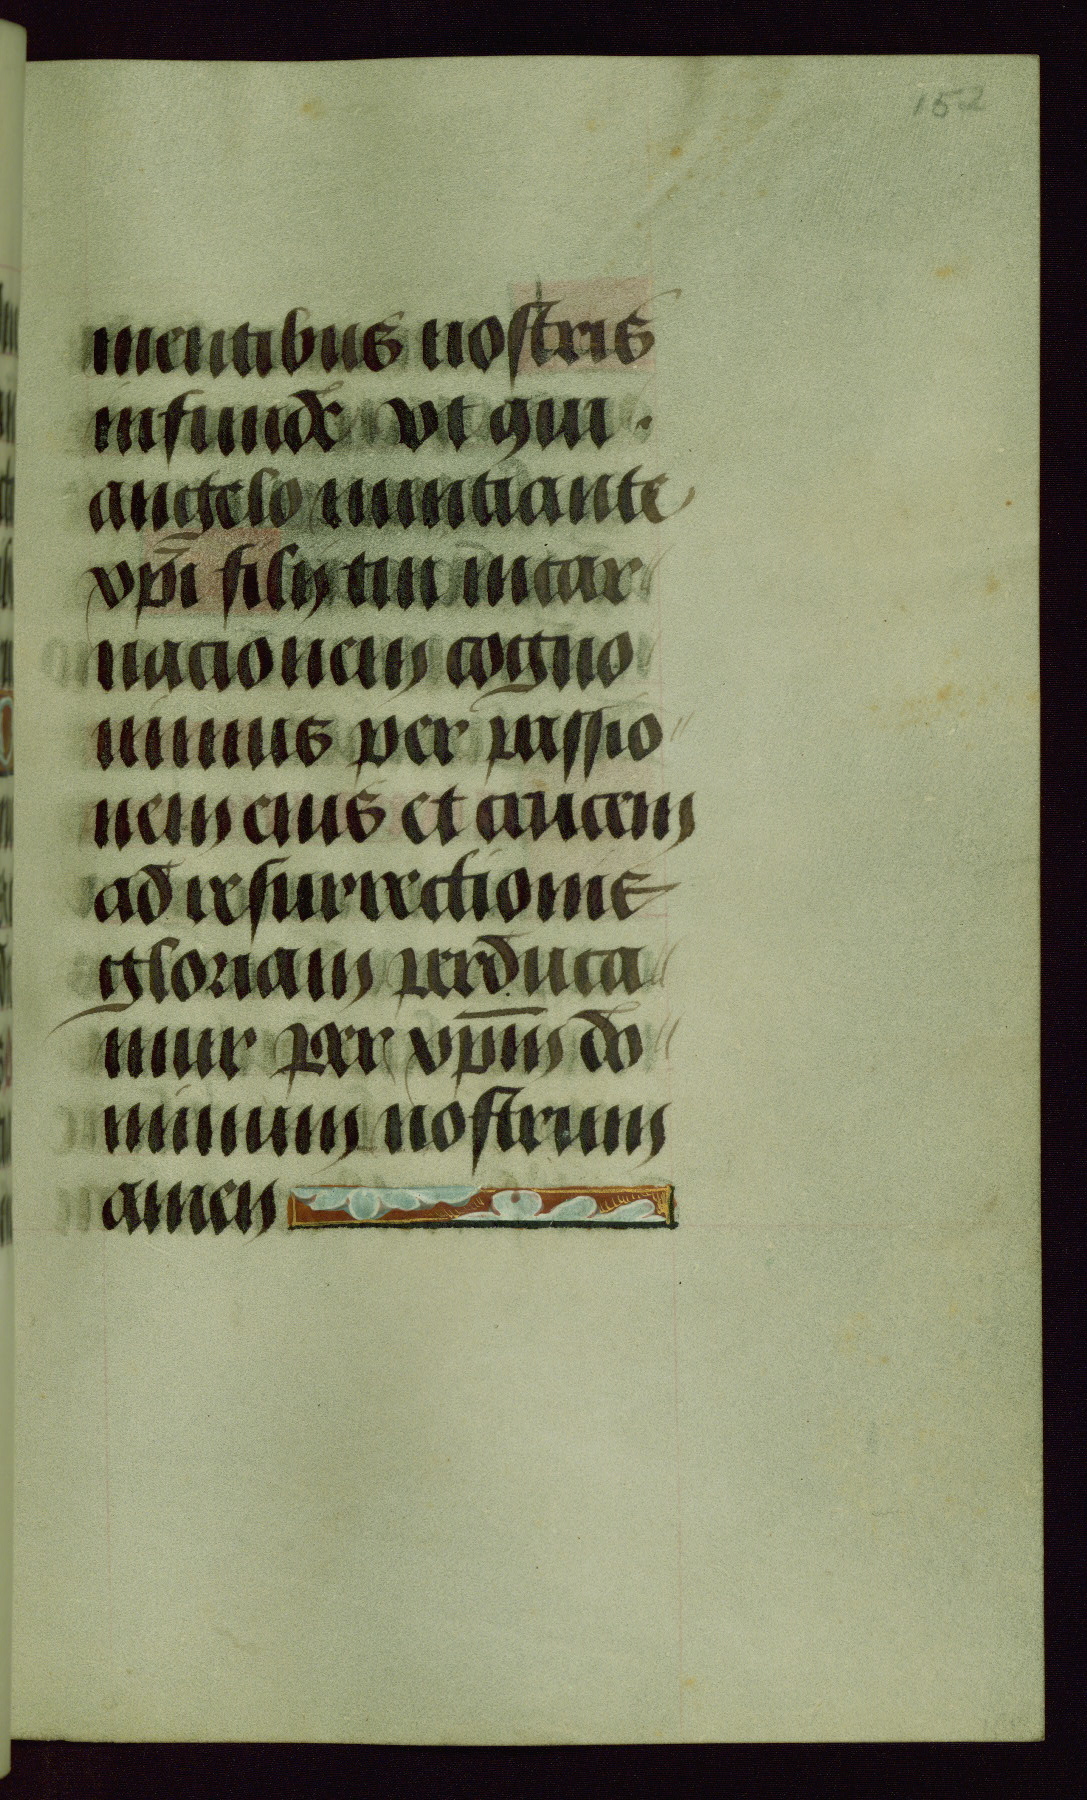 152
mentibus nostris
infunde vt qui
angelo nuntiante
xp̄i filij tui incar
nacionem cogno
uimus per passio
nem eius et crucem
ad resurrectionis
gloriam perduca
mur per xp̄m do
minum nostrum
amen